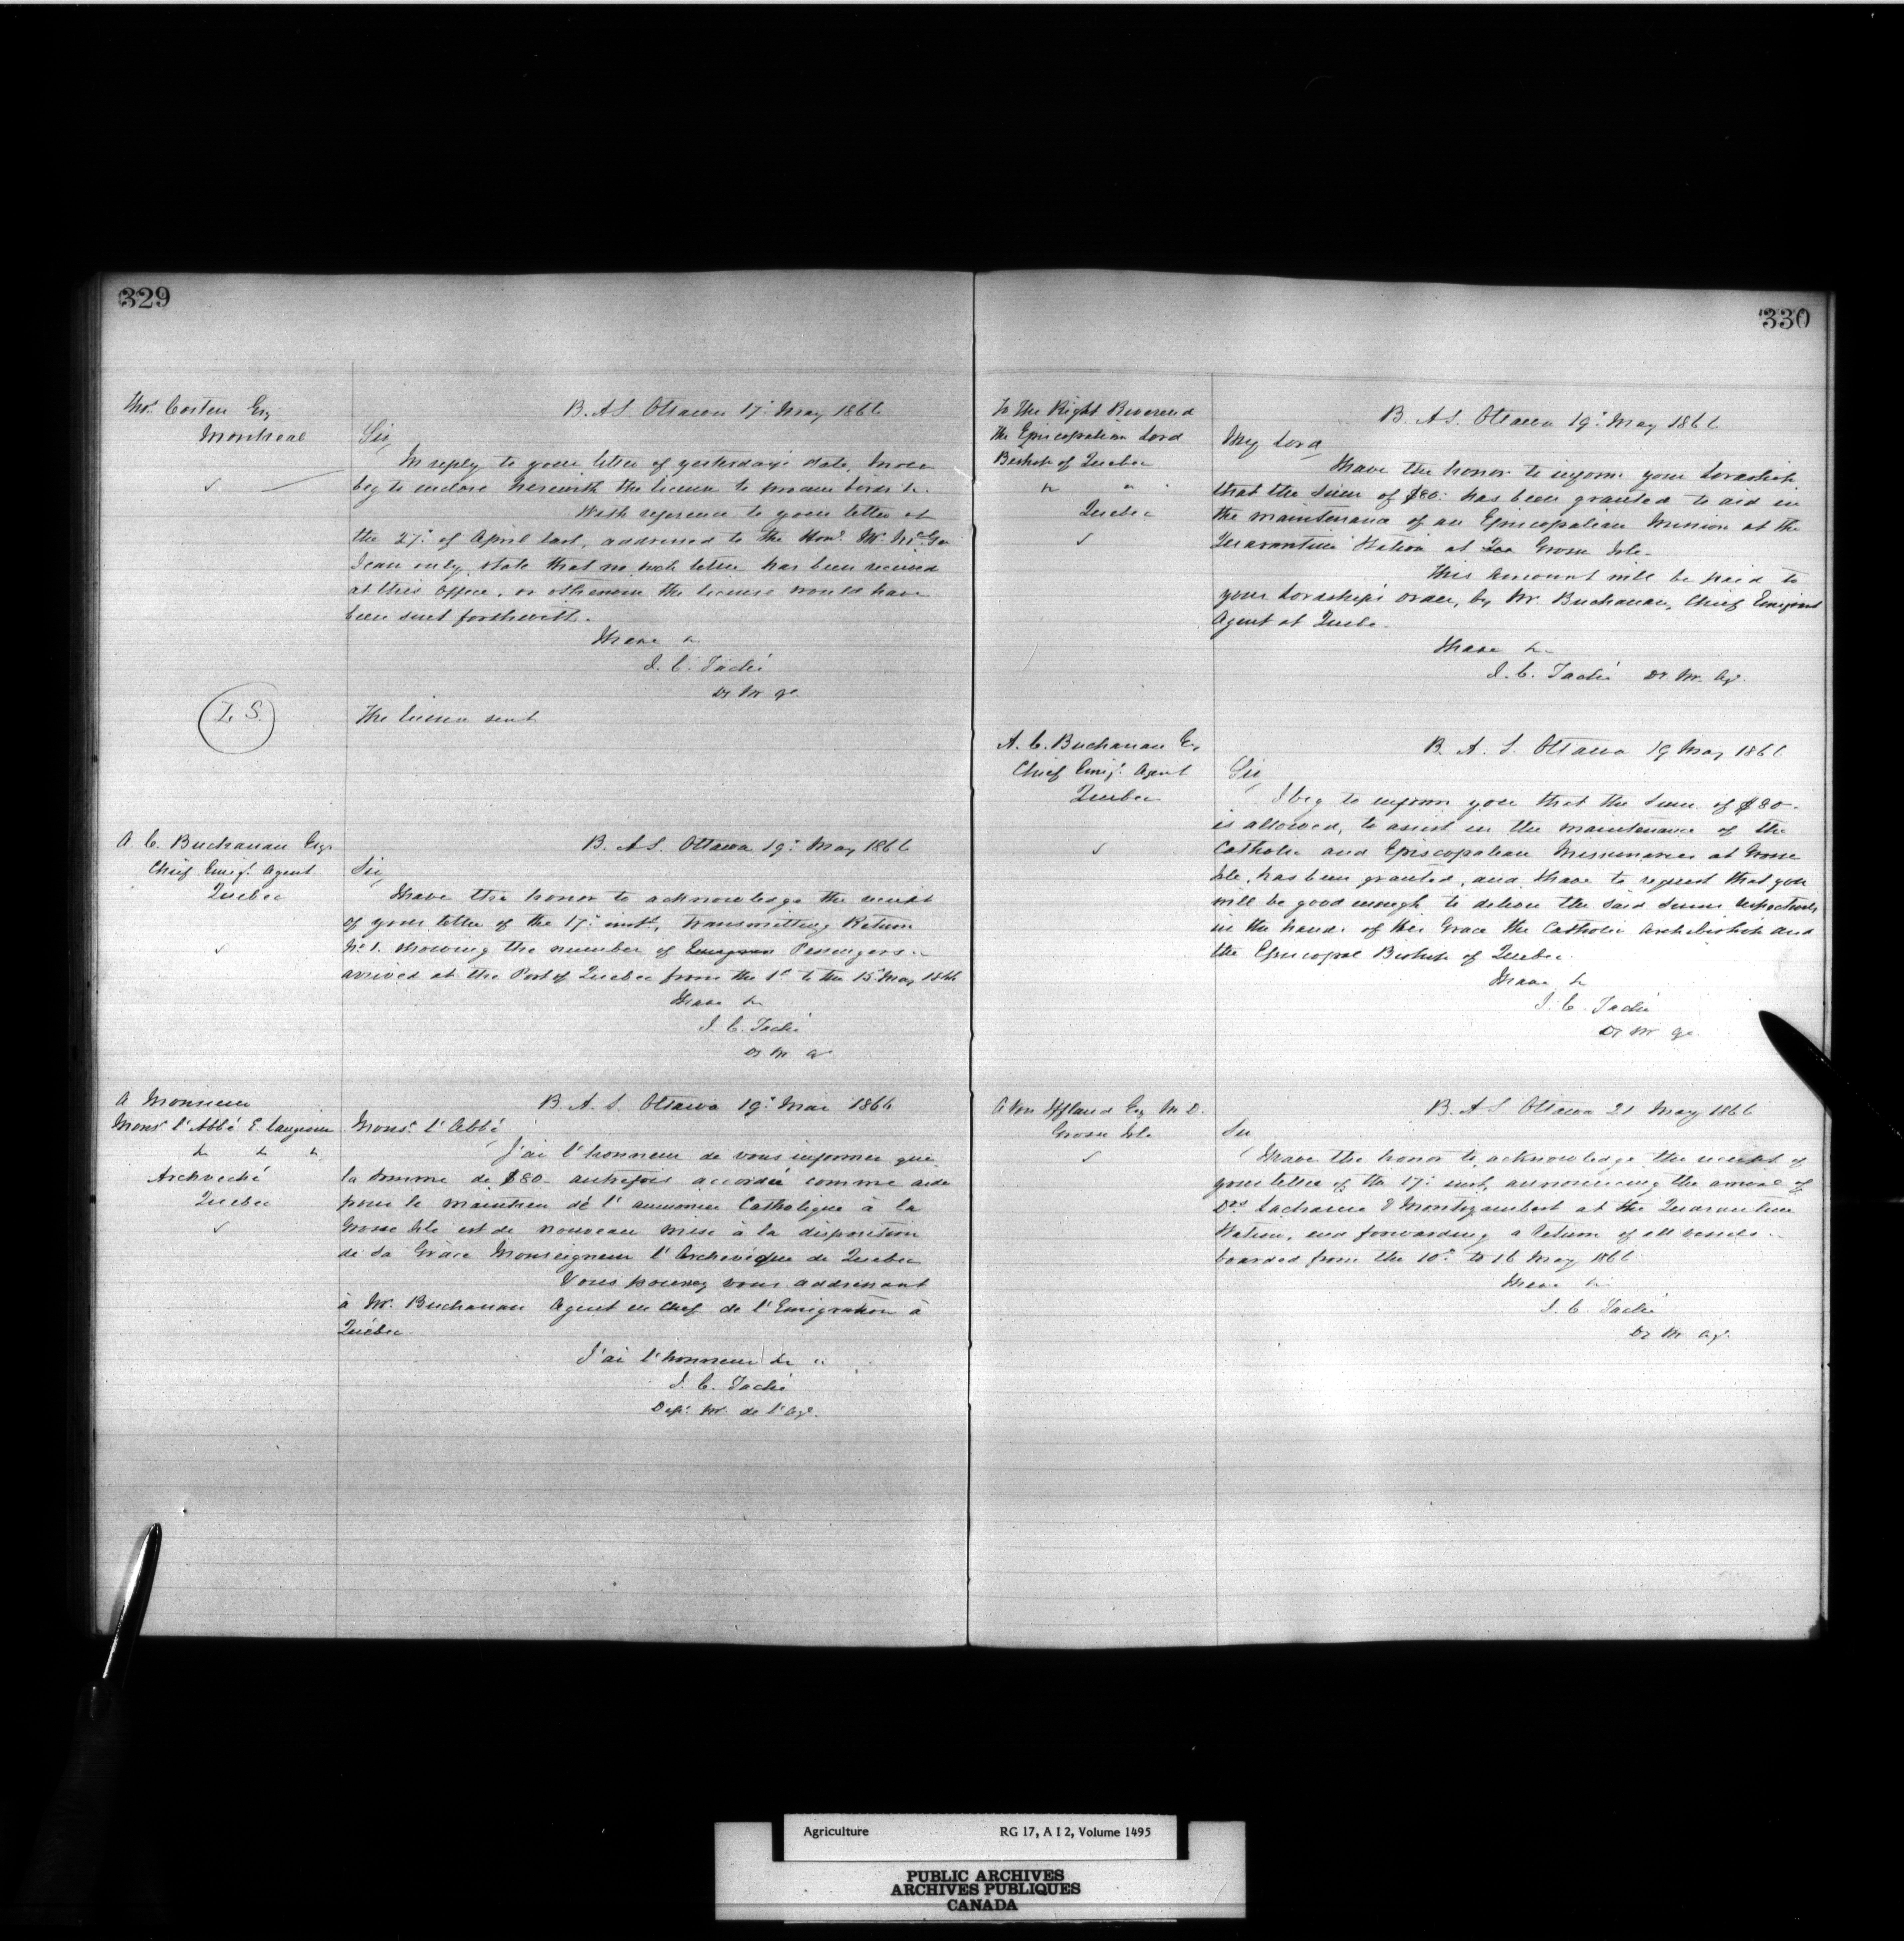 329
Thos. Costen Esq
Montreal
B. A & S. Ottawa 17th May 1866
Sir,
In reply to your letter of yesterday's date, I now
beg to enclose herewith the license to procure birds &c.
With reference to your letter of
the 27th of April last, addressed to the Honl. Mr. McGee
I can only state that no such letter has been received
at this office, or otherwise the license would have
been sent forthwith.
I have &c
J. C. Taché
Dy M Ag.
L. S.
The license sent
A. C. Buchanan Esqr
Chief Emigt. Agent
Quebec
B. A S. Ottawa 19th May 1866
Sir,
I have the honor to acknowledge the receipt
of your letter of the 17th inst, transmitting Return
No 1. showing the number of Passengers
arrived at the Port of Quebec from the 1st to the 15th May 1866
I have &c
J. C. Taché
Dy M Ag
A Monsieur
Monsr. l'Abbé E. Langevin
&c &c &c
Archevêché
Quebec
B. A. S. Ottawa 19th Mai 1866
Monsr. l'Abbé
J'ai l'honneur de vous informer que
la somme de $80 - autrefois accordée comme aide
pour le maintien de l'aumonier Catholique à la
Grosse Isle est de nouveau mise à la disposition
de Sa Grâce Monseigneur l'Archevêque de Quebec
Vous pourrez vous addressant
à Mr. Buchanan Agent en Chef de l'Emigration à
Québec.
J'ai l'honneur &c "
J. C. Taché
Dept. M. de l'Agr.
330
To The Right Reverend
the Episcopalian Lord
Bishop of Quebec
&c &c
Quebec
B. A S. Ottawa 19th May 1866
My Lord,
I have the honor to inform your Lordship
that the sum of $80. has been granted to aid in
the maintenance of an Episcopalian Mission at the
Quarantine Station at Grosse Isle.
This amount will be paid to
your Lordship's order, by Mr. Buchanan, Chief Emigrant
Agent at Quebec.
I have &c
J. C. Taché Dy. M. Ag.
A. C. Buchanan Esq
Chief Emigt. Agent
Quebec
B. A. S. Ottawa 19 May 1866
Sir,
I beg to inform you that the sum of $80-
is allowed, to assist in the maintenance of the
Catholic and Episcopalian Missionaries at Grosse
Isle, has been granted, and I have to request that you
will be good enough to deliver the said sums respectively
in the hands of His Grace the Catholic Archbishop and
the Episcopal Bishop of Quebec.
I have &c
J. C. Taché
Dy M Ag
A Von Iffland Esq M.D.
Grosse Isle
B. A S Ottawa 21 May 1866
Sir,
I have the honor to acknowledge the receipt of
your letter of the 17th inst, announcing the arrival of
Drs. Lacharme & Montizambert at the Quarantine
Station, and forwarding a Return of all vessels
boarded from the 10th to 16 May 1866.
I have &c
J. C. Taché
Dy M Ag.
Agriculture RG 17, A I 2, Volume 1495
PUBLIC ARCHIVES
ARCHIVES PUBLIQUES
CANADA